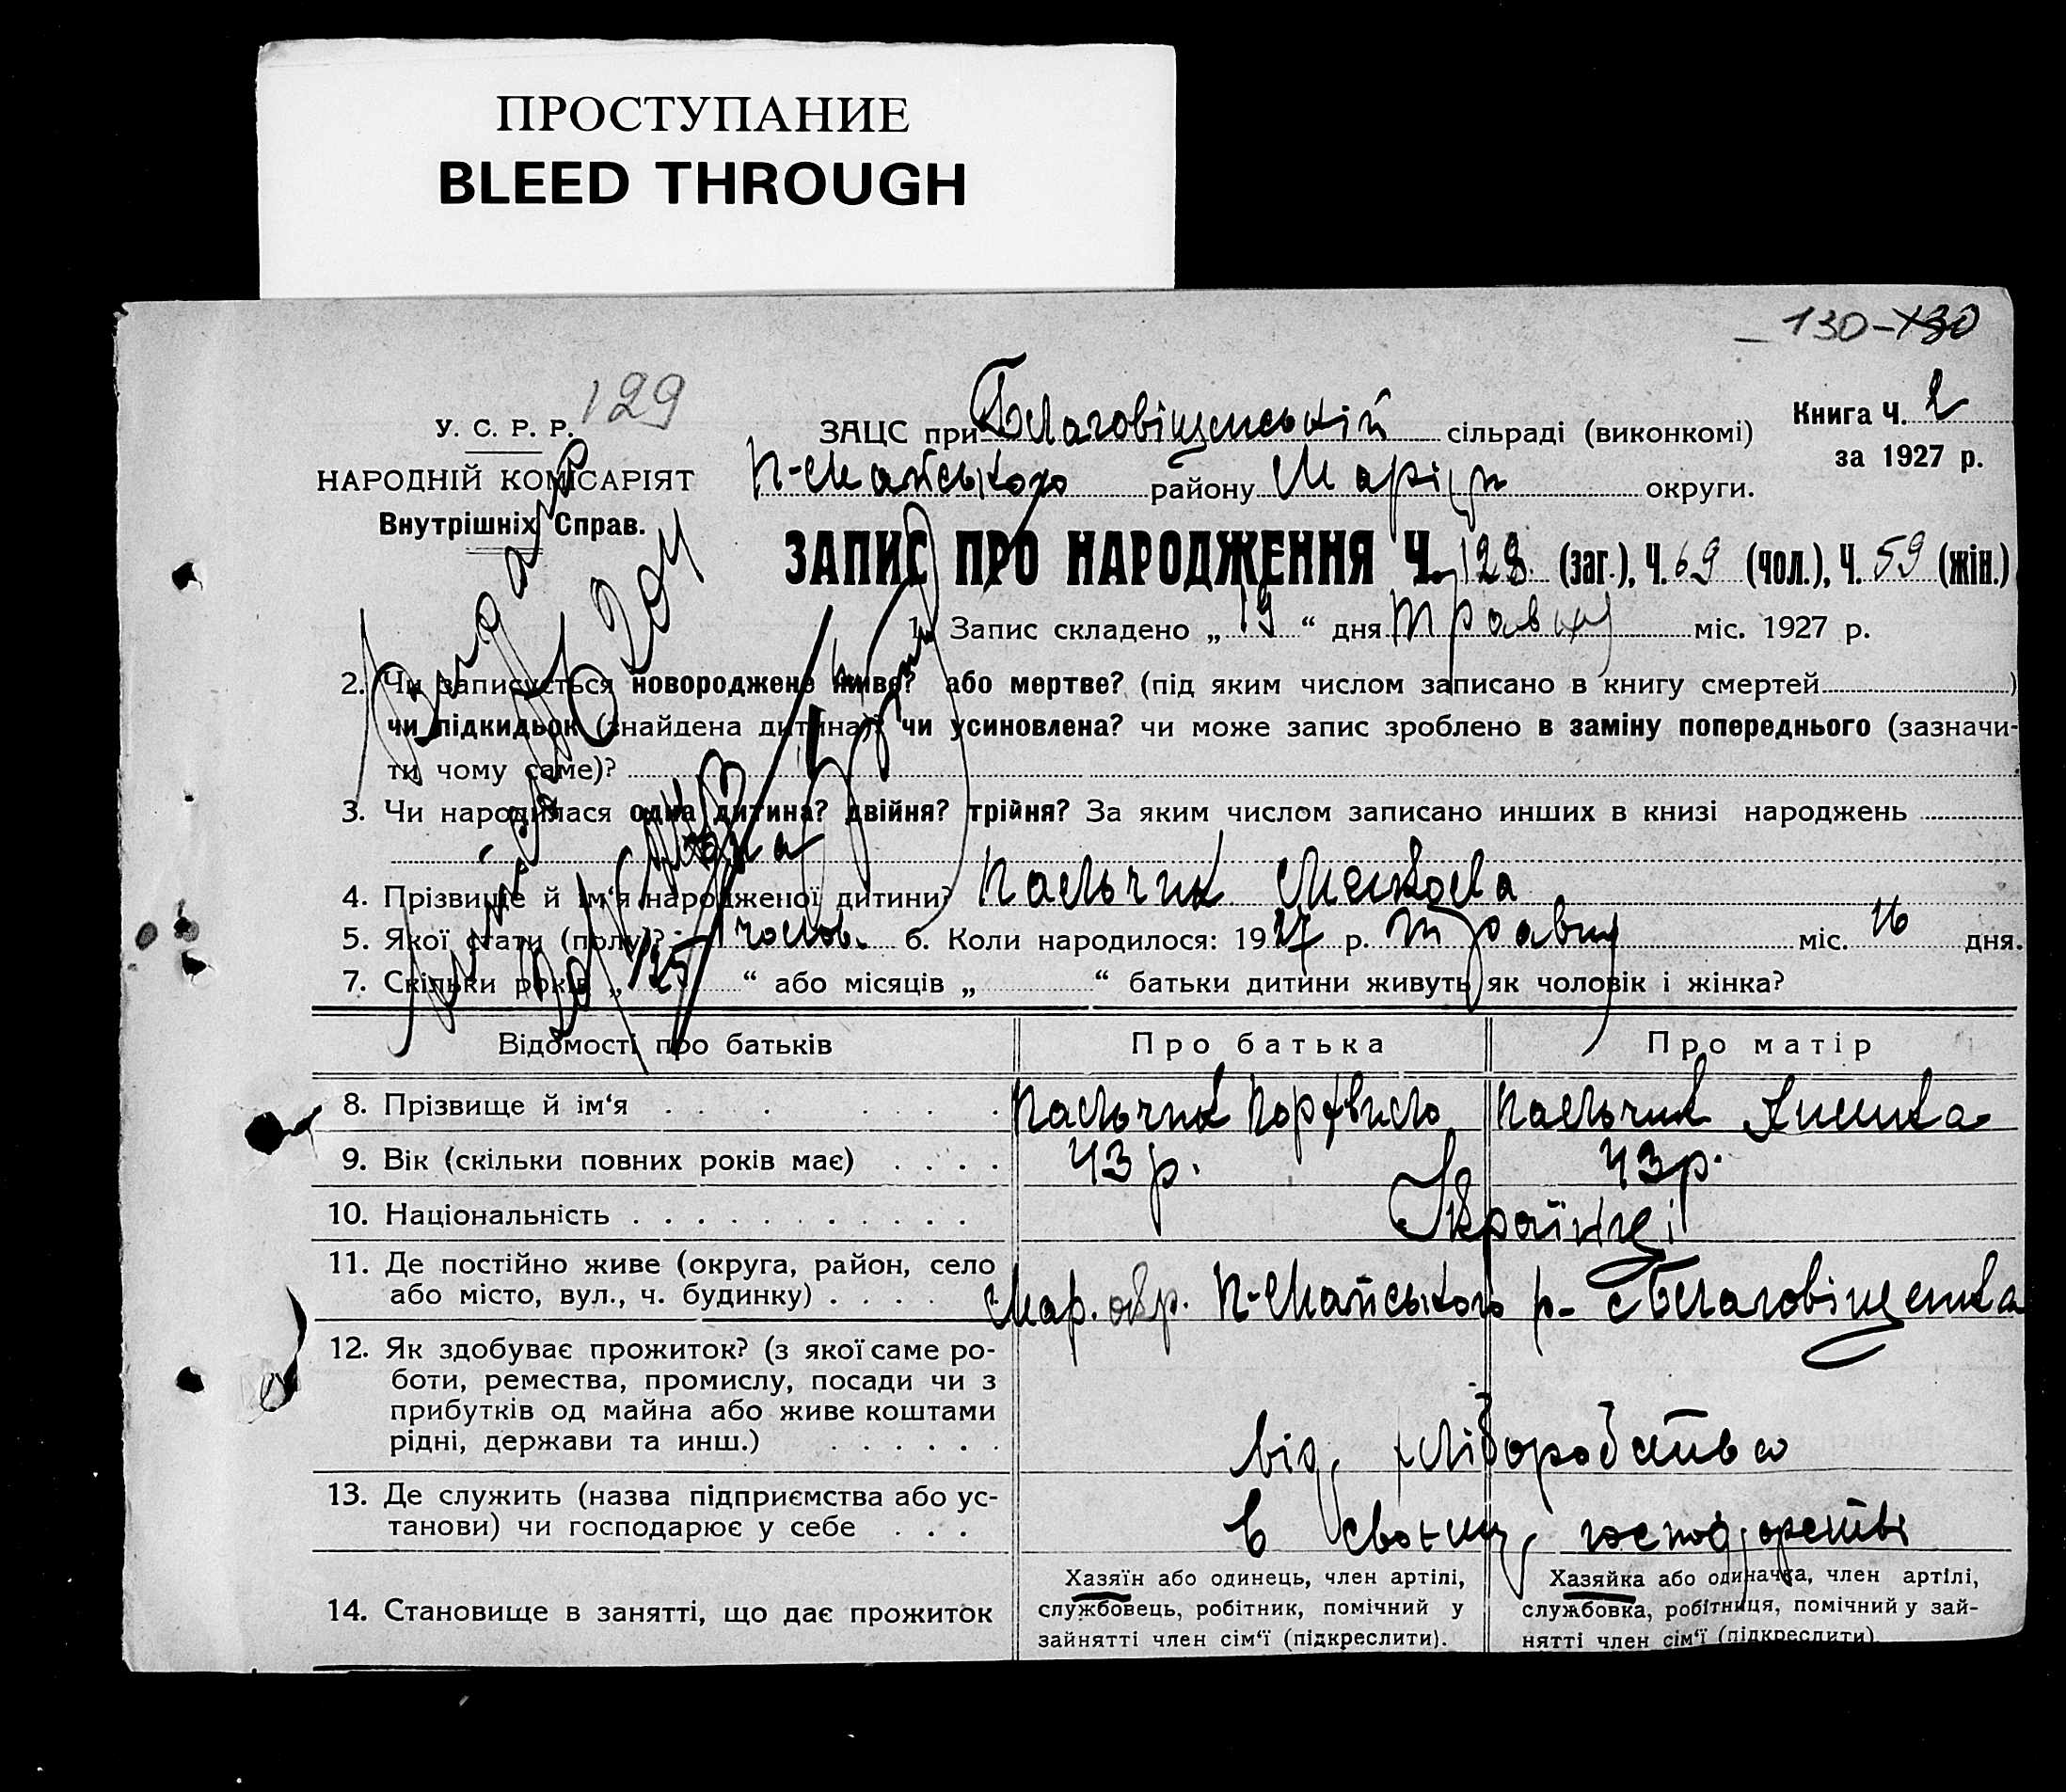 ПРОСТУПАНИЕ
BLEED THROUGH
130-130
129
У. С. Р. Р.
НАРОДНІЙ КОМІСАРІЯТ
Внутрішніх Справ.
ЗАЦС при Благовіщенській сільраді (виконкомі)
П-Майського району Маріуп округи.
Книга Ч. 2
за 1927 р.
ЗАПИС ПРО НАРОДЖЕННЯ Ч. 128 (заг.), Ч. 69 (чол.), Ч. 59 (жін.)
1. Запис складено „ 19 “ дня травня міс. 1927 р.
2. Чи записується новороджене живе? або мертве? (під яким числом записано в книгу смертей )
чи підкидьок (знайдена дитина)? чи усиновлена? чи може запис зроблено в заміну попереднього (зазначи-
ти чому саме)?
3. Чи народилася одна дитина? двійня? трійня? За яким числом записано инших в книзі народжень
одна
4. Прізвище й ім‘я народженої дитини? Пальчик Микола
5. Якої стати (полу)? чолов. 6. Коли народилося: 1927 р. травня міс. 16 дня.
7. Скільки років „ 25 “ або місяців „ “ батьки дитини живуть як чоловік і жінка?
Відомості про батьків
Про батька
Про матір
8. Прізвище й ім‘я . . . . . . . . Пальчик Порфвило Пальчик Химка
9. Вік (скільки повних років має) . . . . 43 р. 43 р.
10. Національність . . . . . . . . . . . Українці
11. Де постійно живе (округа, район, село
або місто, вул., ч. будинку) . . . . Мар. окр. П-Майського р- с Благовіщенка
12. Як здобуває прожиток? (з якої саме ро-
боти, ремества, промислу, посади чи з
прибутків од майна або живе коштами
рідні, держави та инш.) . . . . . . від хліборобства
13. Де служить (назва підприємства або ус-
танови) чи господарює у себе . . . В своєму господарстві
14. Становище в занятті, що дає прожиток
Хазяїн або одинець, член артілі,
службовець, робітник, помічний у
зайнятті член сім‘ї (підкреслити).
Хазяйка або одиначка, член артілі,
службовка, робітниця, помічний у зай-
нятті член сім‘ї (підкреслити).